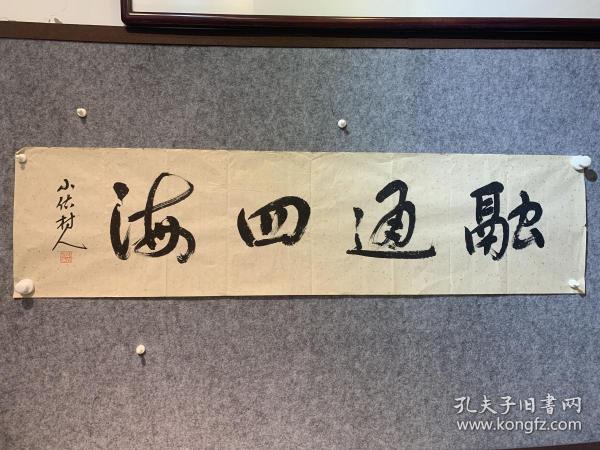 融通四海
小佐村人
孔夫子旧書网
www.kongfz.com